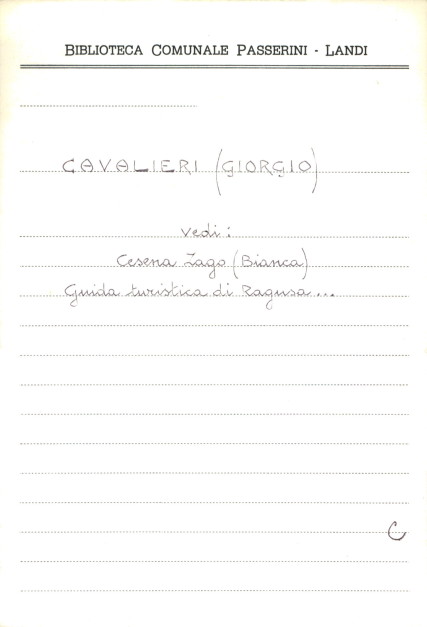 BIBLIOTECA COMUNALE PASSERINI - LANDI
CAVALIERI (GIORGIO)
vedi:
Cesena Zago (Bianca)
Guida turistica di Ragusa...
C